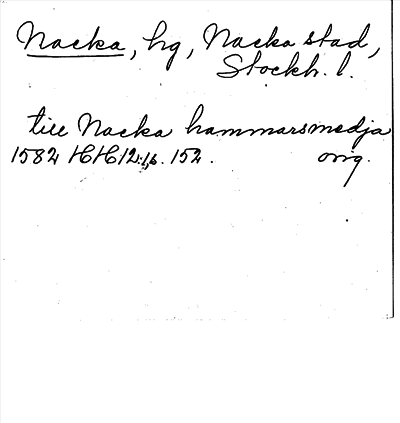 Nacka, hg, Nacka stad,
Stockh. l.
till Nacka hammarsmedja
1582 HH 12:1,b. 152. orig.